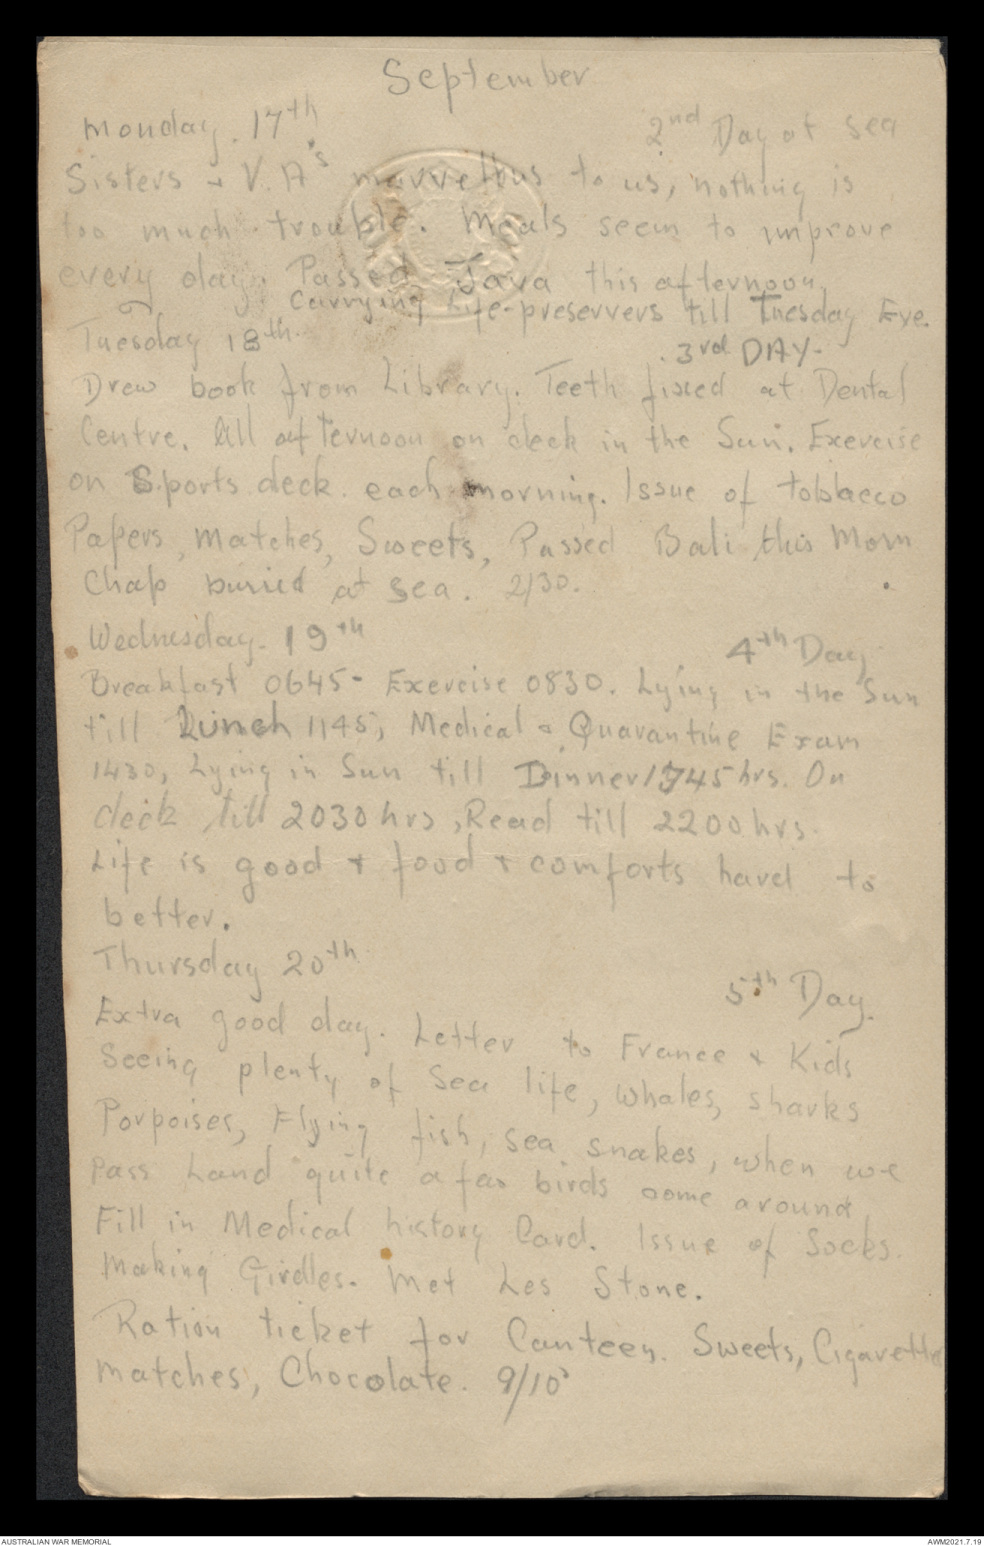 September
Monday. 17th 2nd Day at sea
Sisters + V.A's marvellous to us, nothing is
too much trouble. Meals seem to improve
every day. Passed Java this afternoon.
Carrying Life-preservers till Tuesday Eve.
Tuesday 18th. 3rd DAY-
Drew book from Library. Teeth fixed at Dental
Centre. All afternoon on deck in the Sun. Exercise
on Sports deck each morning. Issue of tobbacco
Papers, Matches, Sweets, Passed Bali this Morn
Chap buried at sea. 2/30.
Wednesday. 19th 4th Day
Breakfast 0645- Exercise 0830. Lying in the Sun
till Lunch 1145, Medical & Quarantine Exam
1430, Lying in Sun till Dinner 1745 hrs. On
deck till 2030 hrs, Read till 2200 hrs.
Life is good + food + comforts hard to
better.
Thursday 20th 5th Day.
Extra good day. Letter to France + Kids
Seeing plenty of Sea life, whales, sharks
Porpoises, Flying fish, sea snakes, when we
pass Land quite a few birds come around
Fill in Medical history Card. Issue of Socks.
Making Girdles. Met Les Stone.
Ration ticket for Canteen. Sweets, Cigarettes
Matches, Chocolate. 9/10
AUSTRALIAN WAR MEMORIAL AWM2021.7.19